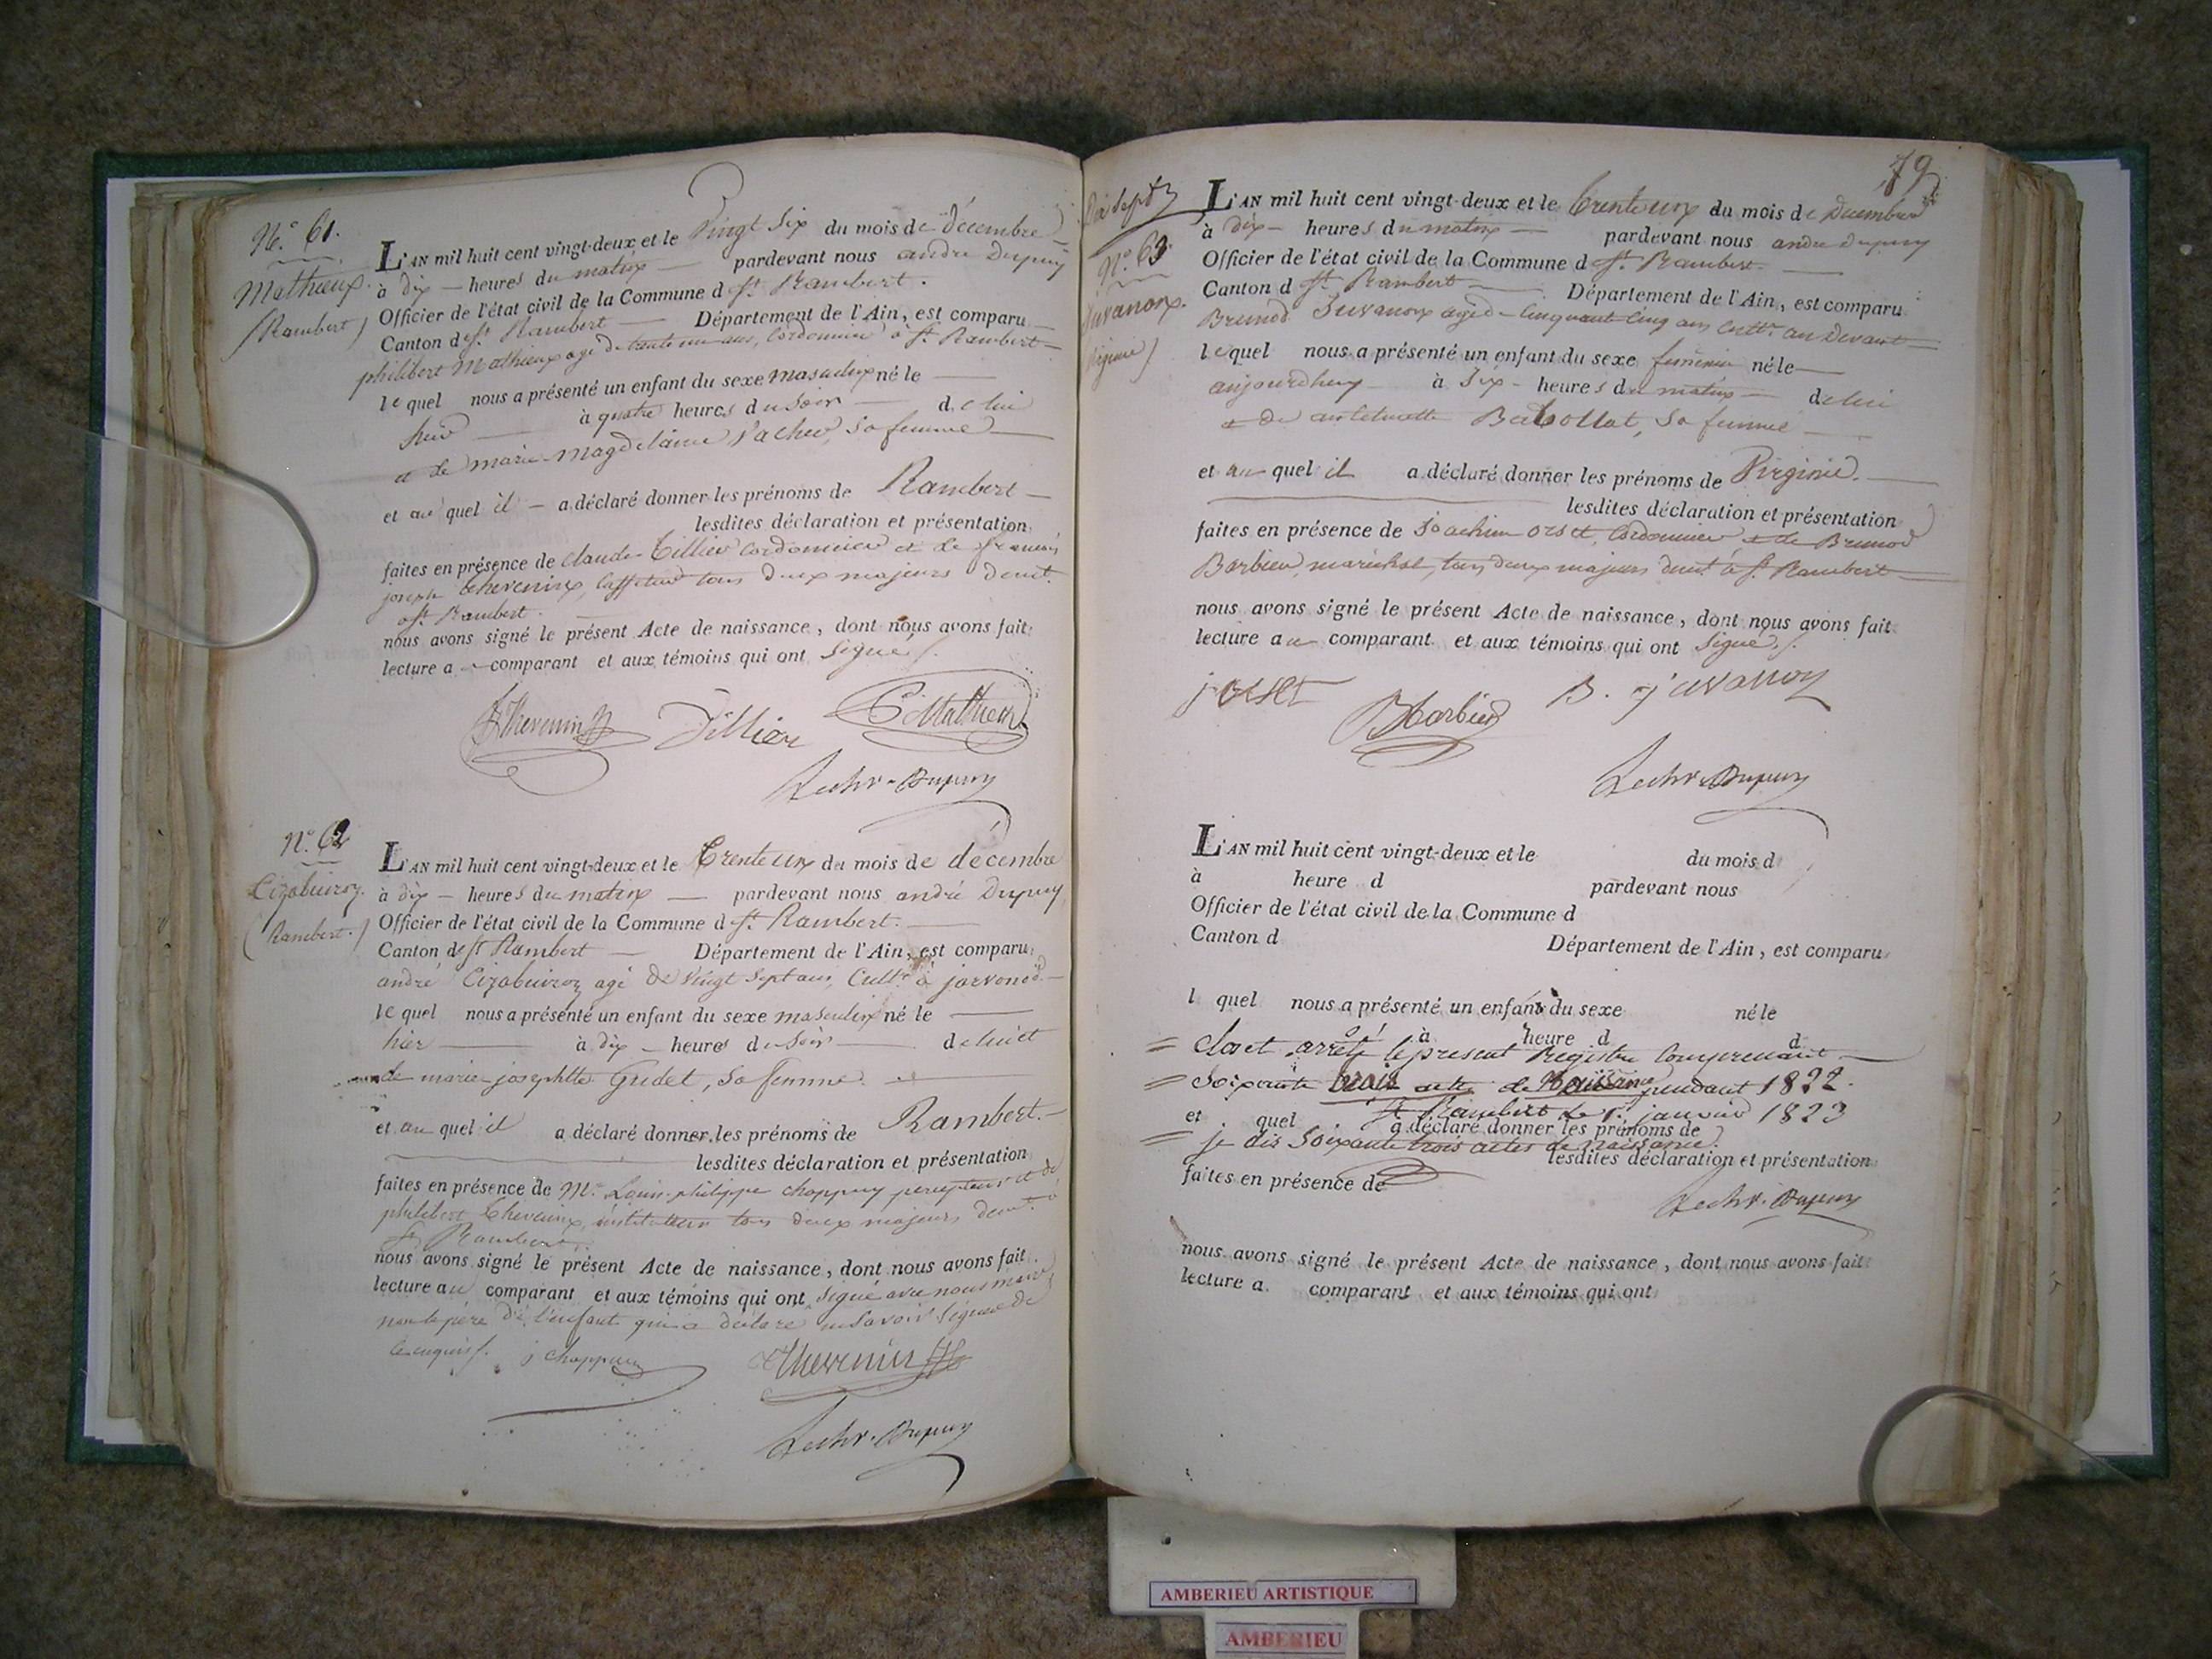 N.° 61.
Mathieux.
(Rambert)
L'AN mil huit cent vingt-deux et le Vingt Six du mois de décembre
à dix heures du matin pardevant nous andré Dupuy
Officier de l'état civil de la Commune d St. Rambert.
Canton de St. Rambert Département de l'Ain, est comparu
philibert Mathieux agé de trente un ans, Cordonnier à St. Rambert
lequel nous a présenté un enfant du sexe masculin né le
hier à quatre heures du soir de lui
et de marie-Magdelaine sa femme
et au quel il a déclaré donner les prénoms de Rambert
lesdites déclaration et présentation
faites en présence de Claude Tillier Cordonnier et de françois
joseph thevenin, tous deux majeurs demt.
à St. Rambert.
nous avons signé le présent Acte de naissance, dont nous avons fait
lecture a comparant et aux témoins qui ont Signé.
Thevenin Tillier Mathieu
Dupuy
N.° 62
(Rambert.)
L'AN mil huit cent vingt-deux et le trente un du mois de décembre
à dix heures du matin pardevant nous andré Dupuy
Officier de l'état civil de la Commune d St. Rambert.
Canton de St Rambert Département de l'Ain, est comparu
andré agé de vingt sept ans, Cultr. à
lequel nous a présenté un enfant du sexe masculin né le
hier à dix heures du soir de lui et
de marie josephtte Gudet, sa femme.
et au quel il a déclaré donner les prénoms de Rambert.
lesdites déclaration et présentation
faites en présence de Mr. Louis philippe chappuy percepteur et de
philibert thevenin, instituteur tous deux majeurs demt. à
St. Rambert.
nous avons signé le présent Acte de naissance, dont nous avons fait
lecture au comparant et aux témoins qui ont signé avec nous maire
non le père de l'enfant qui a déclaré ne savoir signer de
ce enquis. j chappuy
Thevenin
Dupuy
79
N.° 63
Juvanon.
L'AN mil huit cent vingt-deux et le trente un du mois de Decembre
à dix heures du matin pardevant nous andré dupuy
Officier de l'état civil de la Commune d St. Rambert
Canton d St. Rambert Département de l'Ain, est comparu
Brunod Juvanon agé de Cinquante Cinq ans Cultr. au Devant
lequel nous a présenté un enfant du sexe feminin né le
aujourdhuy à Six heures du matin de lui
et de anthelmette Babollat, sa femme
et au quel il a déclaré donner les prénoms de Virginie.
lesdites déclaration et présentation
faites en présence de Joachim orset, Cordonnier, et de Brunod
Barbier, maréchal, tous deux majeurs demt. à St. Rambert
nous avons signé le présent Acte de naissance, dont nous avons fait
lecture au comparant et aux témoins qui ont Signé.
j orset B Barbier B. juvanon
Dupuy
L'AN mil huit cent vingt-deux et le du mois d
à heure d pardevant nous
Officier de l'état civil de la Commune d
Canton d Département de l'Ain, est comparu
l quel nous a présenté un enfant du sexe né le
à heure d d
Clos et arrêté le present Registre Comprenant
Soixante trois actes de Naissance pendant 1822.
St. Rambert le 1er. janvier 1823
et quel a déclaré donner les prénoms de
je dis Soixante trois actes de naissance.
lesdites déclaration et présentation
faites en présence de
Dupuy
nous avons signé le présent Acte de naissance, dont nous avons fait
lecture a comparant et aux témoins qui ont
AMBERIEU ARTISTIQUE
AMBERIEU